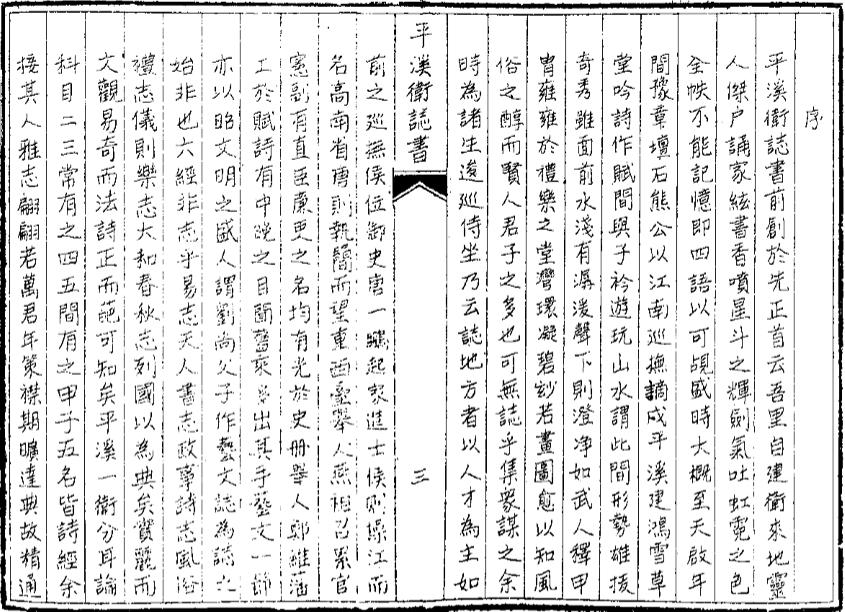 序
平溪衛誌書前創於先正首云吾里自建衛來地靈
人傑户誦家絃書香噴星斗之輝劍氣吐虹霓之色
全帙不能記憶即四語以可覘盛時大概至天啟年
間豫章壇石熊公以江南巡撫謫戍平溪建鴻雪草
堂吟詩作賦間與子衿遊玩山水謂此間形勢雄拔
奇秀雖面前水淺有潺湲聲下則澄净如武人釋甲
胄雍雍於禮樂之堂灣環凝碧紗若畫圖愈以知風
俗之醇而賢人君子之多也可無誌乎集衆謀之余
時為諸生逡巡侍坐乃云誌地方者以人才為主如
平溪衛誌書
三
前之巡撫侯位御史唐一鵷起家進士侯則操江而
名高南省唐則執簡而望東西臺舉人燕祖召累官
憲副有直臣廉吏之名均有光於史册舉人鄭維藩
工於賦詩有中晚之目簡舊衷多出其手藝文一節
亦以昭文明之盛人謂劉尚父子作藝文誌為誌之
始非也六經非志乎易志天人書志政事詩志風俗
禮志儀則樂志大和春秋志列國以為典矣實麗而
文觀易奇而法詩正而葩可知矣平溪一衛分耳論
科目二三常有之四五間有之甲子五名皆詩經余
接其人雅志翩翩若萬君年策襟期曠達典故精通